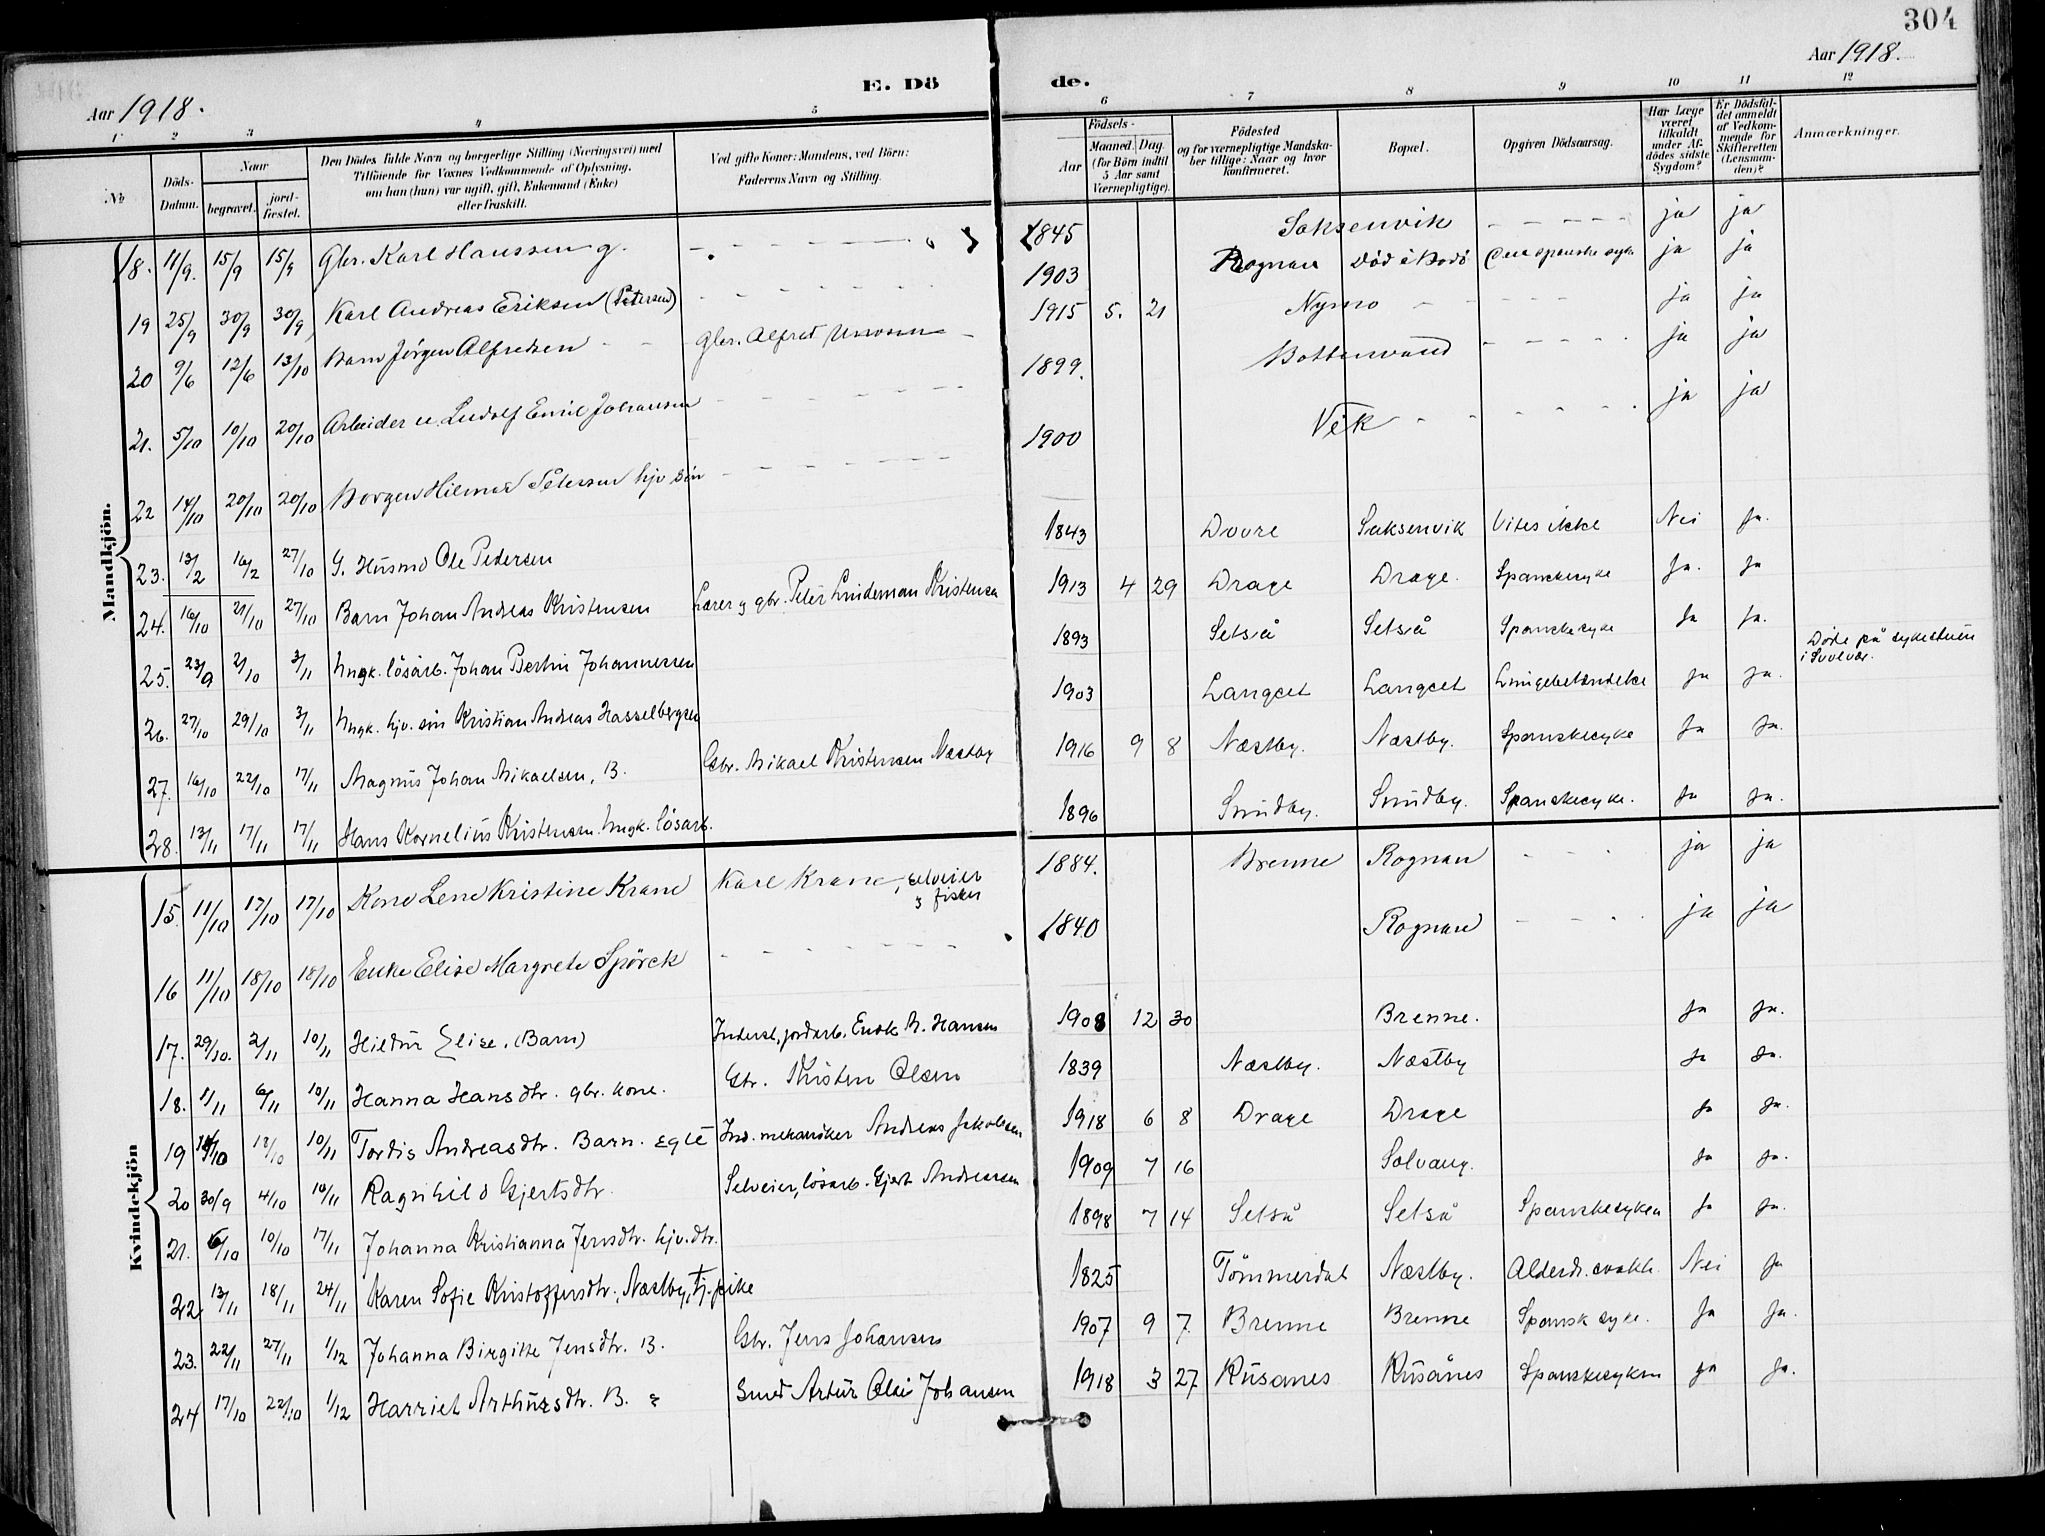 304
Aar 1918.
E. Dö de.
Aar 1918.
1 2 3 4 5 6 7 8 9 10 11 12
No
Döds-Datum.
Naar
begravet.
jord-fæstet.
Den Dödes fulde Navn og borgerlige Stilling (Næringsvei) med Tilföiende for Voxnes Vedkommende af Oplysning, om han (hun) var ugift, gift, Enkemand (Enke) eller fraskilt.
Ved gifte Koner: Mandens, ved Börn: Faderens Navn og Stilling.
Födsels-
Aar
Maaned. Dag.
(for Börn indtil 5 Aar samt Værnepligtige).
Födested og for værnepligtige Mandskaber tillige: Naar og hvor konfirmeret.
Bopæl.
Opgiven Dödsaarsag.
Har Læge været tilkaldt under Afdödes sidste Sygdom?
Er Dödsfaldet anmeldt af Vedkommende for Skifteretten (Lensmanden)?
Anmærkninger.
Mandkjön.
18. 11/9. 15/9 15/9 Gbr. Karl Hanssen g. 1845 Saksenvik ja ja
19 25/9 30/9 30/9 Karl Andreas Eriksen (Petersen) 1903 Rognan Död i Bodö spanske syke ja ja
20 9/6 12/6 13/10 Barn Jörgen Alfredsen Gbr. Alfred 1915 5. 21 Nymo ja ja
21. 5/10 10/10 20/10 Arbeider u. Ludolf Emil Johansen 1899. Bottenvand ja ja
22 14/10 20/10 20/10 Borgen Hilmar Petersen hjv sön 1900 Vik ja ja
23. 13/2 16/2 27/10 G. Husmd Ole Pedersen 1843 Dovre Saksenvik Vites ikke Nei Ja.
24. 16/10 21/10 27/10 Barn Johan Andreas Kristensen Lærer g gbr. Peter Lindeman Kristensen 1913 4 29 Drage Drage. Spanskesyke Ja. Ja
25. 23/9 2/10 3/11 Ungk. lösarb. Johan Bertin Johannesen 1893 Setså Setså Spanskesyke Ja Ja. Döde på sykestuen i Svolvær.
26. 27/10 29/10 3/11 Ungk. hjv. sön Kristian Andreas Hasselbergsen 1903 Langset Langset Lungebetændelse Ja Ja.
27. 16/10 22/10 17/11 Magnus Johan Mikaelsen, B. Gbr. Mikael Kristensen Næstby 1916 9 8 Næstby. Næstby. Spanskesyke Ja Ja.
28. 13/11 17/11 17/11 Hans Kornelius Kristensen Ungk. lösarb. 1896 Sundby. Sundby. Spanskesyke. Ja Ja.
Kvindekjön
15. 11/10 17/10 17/10 Kone Lene Kristine Krane Karl Krane, selveier g fisker 1884. Brenne Rognan ja ja
16 11/10 18/10 18/10 Enke Elise Margrete Spörck 1840 Rognan ja ja
17. 29/10. 2/11 10/11 Hildur Elise. (Barn) Inderst, jordarb. Enok M. Hansen 1908 12 30 Brenne. Ja Ja.
18. 1/11 6/11 10/11 Hanna Hansdtr. gbr. kone. Gbr. Kristen Olsen 1839 Næstby. Næstby Ja Ja.
19 14/10 18/10 10/11 Tordis Andreasdtr. Barn. Egte Ind. mekaniker Andreas Jakobsen 1918 6 8 Drage Drage Ja Ja.
20 30/9 4/10 10/11 Ragnhild Gjertsdtr. Selveier, lösarb. Gjert Andreassen 1909 7 16 Solvang. Ja Ja.
21. 6/10 10/10 17/11 Johanna Kristianna Jensdtr. hjv. dtr. 1898 7 14 Setså Setså Spanskesyken Ja Ja.
22. 13/11 18/11 24/11 Karen Sofie Kristoffersdtr., Næstby, tj. pike 1825 Tömmerdal Næstby. Alderd. svakh. Nei Ja
23. 22/11 27/11 1/12 Johanna Birgitte Jensdtr. B. Gbr. Jens Johansen 1907 9 7. Brenne Brenne Spansk syke. Ja Ja.
24 17/10 22/10 1/12 Harriet Arthursdtr. B. Smed Artur Olai Johansen 1918 3 27 Rusanes Rusånes Spanskesyken Ja Ja.